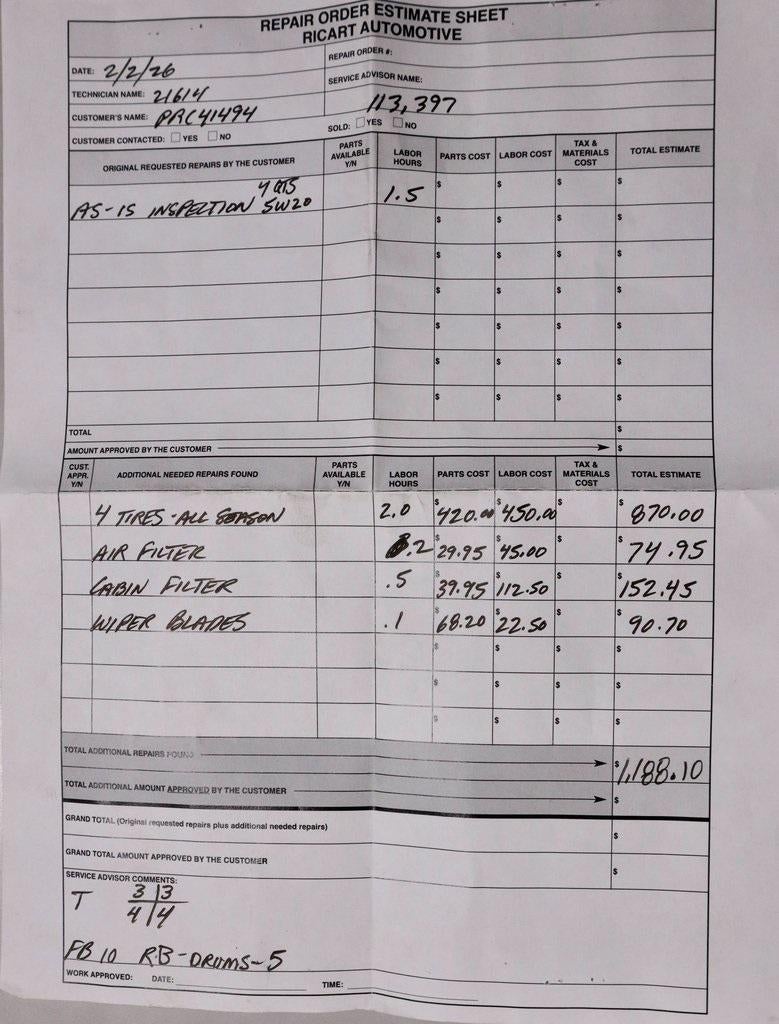 REPAIR ORDER ESTIMATE SHEET
RICART AUTOMOTIVE
DATE: 2/2/26
REPAIR ORDER #:
TECHNICIAN NAME: 21614
SERVICE ADVISOR NAME:
CUSTOMER'S NAME: PRC41494
113,397
CUSTOMER CONTACTED: YES NO
SOLD: YES NO
ORIGINAL REQUESTED REPAIRS BY THE CUSTOMER PARTS AVAILABLE Y/N LABOR HOURS PARTS COST LABOR COST TAX & MATERIALS COST TOTAL ESTIMATE
4 QTS
AS-IS INSPECTION 5W20 1.5 $ $ $ $
$ $ $ $
$ $ $ $
$ $ $ $
$ $ $ $
$ $ $ $
$ $ $ $
TOTAL $
AMOUNT APPROVED BY THE CUSTOMER $
CUST. APPR. Y/N ADDITIONAL NEEDED REPAIRS FOUND PARTS AVAILABLE Y/N LABOR HOURS PARTS COST LABOR COST TAX & MATERIALS COST TOTAL ESTIMATE
4 TIRES - ALL SEASON 2.0 $420.00 $450.00 $ $870.00
AIR FILTER .2 $29.95 $45.00 $ $74.95
CABIN FILTER .5 $39.95 $112.50 $ $152.45
WIPER BLADES .1 $68.20 $22.50 $ $90.70
$ $ $ $
$ $ $ $
$ $ $ $
TOTAL ADDITIONAL REPAIRS FOUND $1,188.10
TOTAL ADDITIONAL AMOUNT APPROVED BY THE CUSTOMER $
GRAND TOTAL (Original requested repairs plus additional needed repairs) $
GRAND TOTAL AMOUNT APPROVED BY THE CUSTOMER $
SERVICE ADVISOR COMMENTS:
T 3 3
4 4
FB 10 RB-DRUMS-5
WORK APPROVED: DATE: TIME: